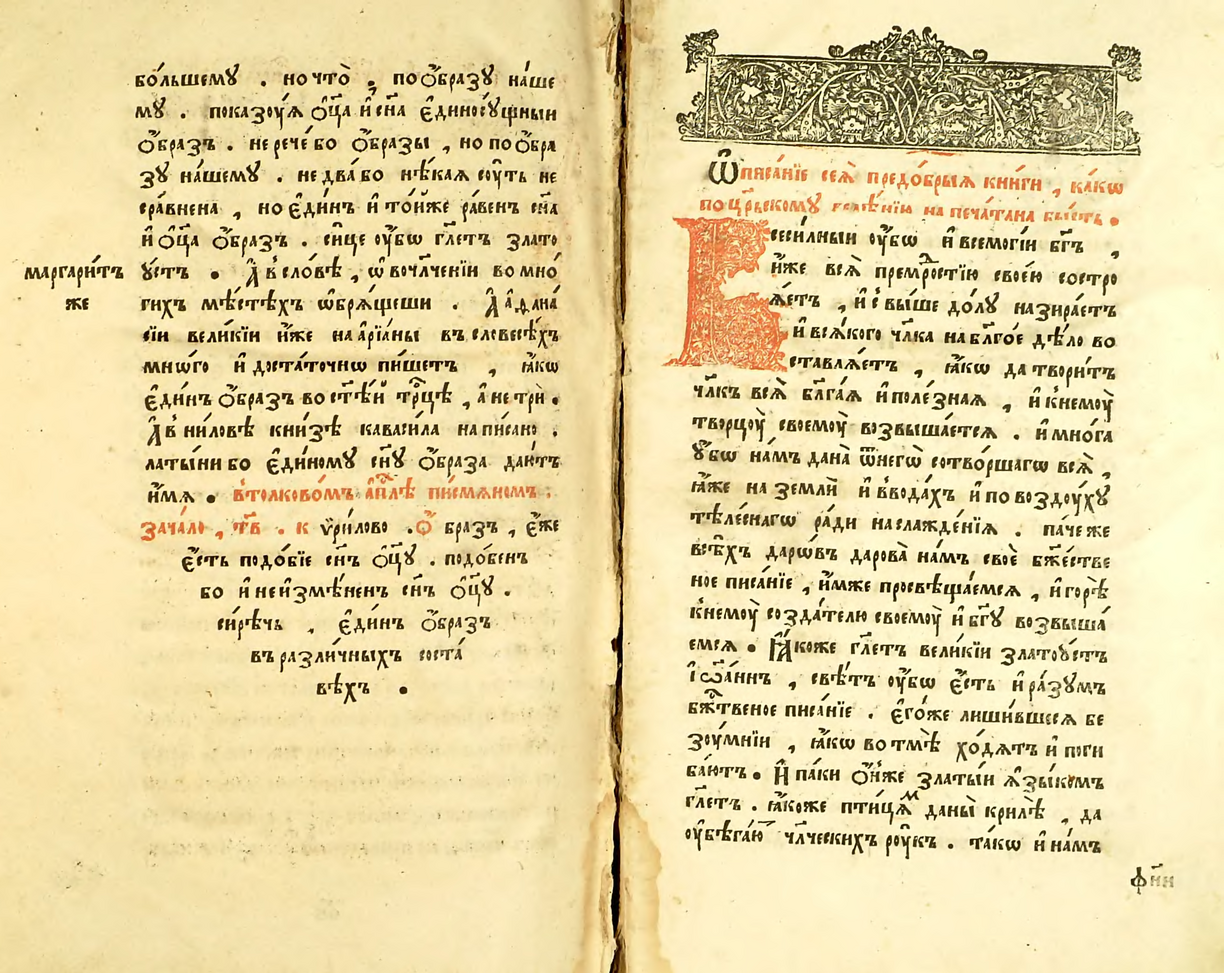 бо́льшемꙋ . но что̀ , по ѻ҆́бразꙋ на́ше
мꙋ . показꙋ́ѧ ѻ҆ц҃а и҆ сн҃а є҆диносꙋ́щныи
ѻ҆́бразъ . не рече́ бо ѻ҆́бразы , но по ѻ҆́бра
зꙋ на́шемꙋ . не два́ бо нѣ́каѧ сꙋ́ть не
сра́внена , но є҆ди́нъ и҆ то́йже ра́венъ сн҃а
и҆ ѻ҆ц҃а ѻ҆́бразъ . си́це ᲂу҆́бѡ гл҃етъ злато
ꙋ́стъ . А҆ в сло́вѣ , ѡ҆ вочл҃че́нїи во мно́
маргари́тъ
же
гихъ мѣ́стѣхъ ѡ҆брѧ́щеши . А҆ а҆дана́
сїи вели́кїи и҆́же на а҆рїа́ны въ словесѣ́хъ
мно́гѡ и҆ доста́точнѡ пи́шетъ , ꙗ҆́кѡ
є҆ди́нъ ѻ҆́бразъ во ст҃ѣ́й трⷪ҇цѣ , а҆ не трѝ .
А҆ в ни́ловѣ кни́зѣ кава́сила напи́сано .
латы́ни бо є҆ди́номꙋ сн҃ꙋ ѻ҆́браза даю́тъ
и҆́мѧ . в толково́мъ а҆пⷭ҇лѣ пи́смѧномъ :
зача́ло , т҃в . к ѵ҆ри́лово . Ѻ҆́ бразъ , є҆́же
є҆́сть подо́бїе сн҃ъ ѻ҆ц҃ꙋ . подо́бенъ
бо и҆ неизмѣ́ненъ сн҃ъ ѻ҆ц҃ꙋ .
си́рѣчь , є҆ди́нъ ѻ҆́бразъ
въ разли́чныхъ соста́
вѣхъ .
Ѿписа́нїе сеѧ̀ предо́брыѧ кни́ги , ка́кѡ
по цр҃ьскомꙋ велѣ́нїю на печа́тана бы́сть .
Всеси́лныи ᲂу҆́бѡ и҆ всемогі́и бг҃ъ ,
и҆́же всѧ̀ премⷣростїю свое́ю состро
ѧ́етъ , и҆ с вы́ше до́лꙋ назира́етъ
и҆ всѧ́кого чл҃ка на бл҃го́е дѣ́ло во
ставлѧ́етъ , ꙗ҆́кѡ да твори́тъ
чл҃къ всѧ̀ бл҃га́ѧ и҆ поле́знаѧ , и҆ к немꙋ̀
творцꙋ̀ своемꙋ̀ возвыша́етсѧ . и҆ мно́га
ᲂу҆́бѡ на́мъ дана̀ ѿ негѡ̀ сотво́ршагѡ всѧ̀ ,
ꙗ҆́же на землѝ и҆ в вода́хъ и҆ по воздꙋ́хꙋ
тѣле́снагѡ ра́ди наслажде́нїѧ . паче же
всѣ́хъ даро́въ дарова̀ на́мъ своѐ бж҃е́стве
ное писа́нїе , и҆́мже просвѣща́емсѧ , и҆ горѣ̀
к немꙋ̀ созда́телю своемꙋ̀ и҆ бг҃ꙋ возвыша́
емсѧ . Ꙗ҆́коже гл҃етъ вели́кїи златоꙋ́стъ
І҆ѡа́ннъ , свѣ́тъ ᲂу҆́бѡ є҆́сть и҆ ра́зꙋмъ
бжⷭ҇твеное писа́нїе . є҆гѡ́же лиши́вшесѧ бе
зꙋ́мнїи , ꙗ҆́кѡ во тмѣ̀ хо́дѧтъ и҆ поги
ба́ютъ . И҆ па́ки ѻ҆́нже златы́и ѧ҆зы́комъ
гл҃етъ . ꙗ҆́коже пти́цѧⷨ даны̀ крилѣ̀ , да
ᲂу҆бѣга́ю҆ чл҃ческихъ рꙋ́къ . та́кѡ и҆ на́мъ